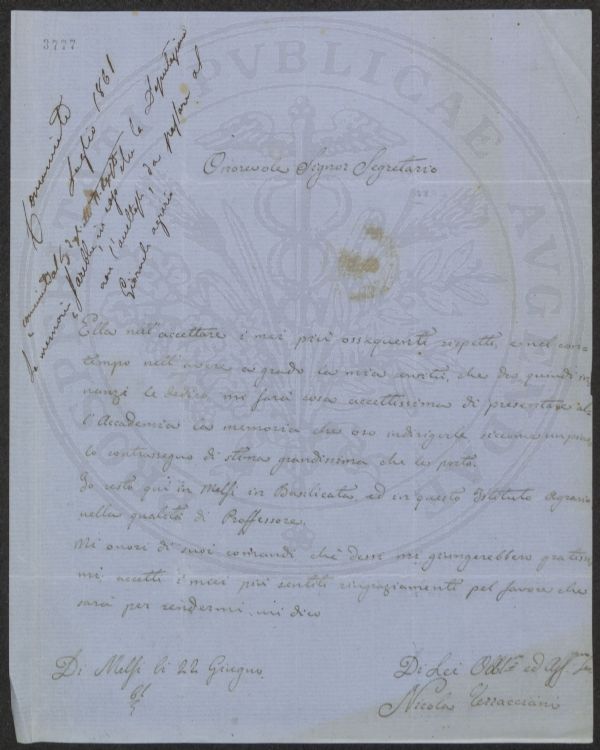 3777
Comunicata
Luglio 1861
è comunicata
la memoria
in caso che la Deputazione
non l'accettasse, da passare al
Giornale agrario
PVBLICAE
Onorevole Signor Segretario
Ella nell'accettare i miei più ossequenti rispetti, e nel con-
tempo nell'avere a grado la mia servitù, che da quindi in-
nanzi le dedico, mi farà cosa accettissima di presentare al-
l'Accademia la memoria che oso indirigerle siccome un picco-
lo contrassegno di stima grandissima che le porto.
Io resto qui in Melfi in Basilicata, ed in questo Istituto Agrario
nella qualità di Proffessore.
Mi onori di suoi comandi chè dessi mi giungerebbero gratissi-
mi, accetti i miei più sentiti ringraziamenti pel favore che
sarà per rendermi, mi dico
Di Melfi li 22 Giugno
61
Di Lei Obblo ed Aff.mo
Nicola Terracciano